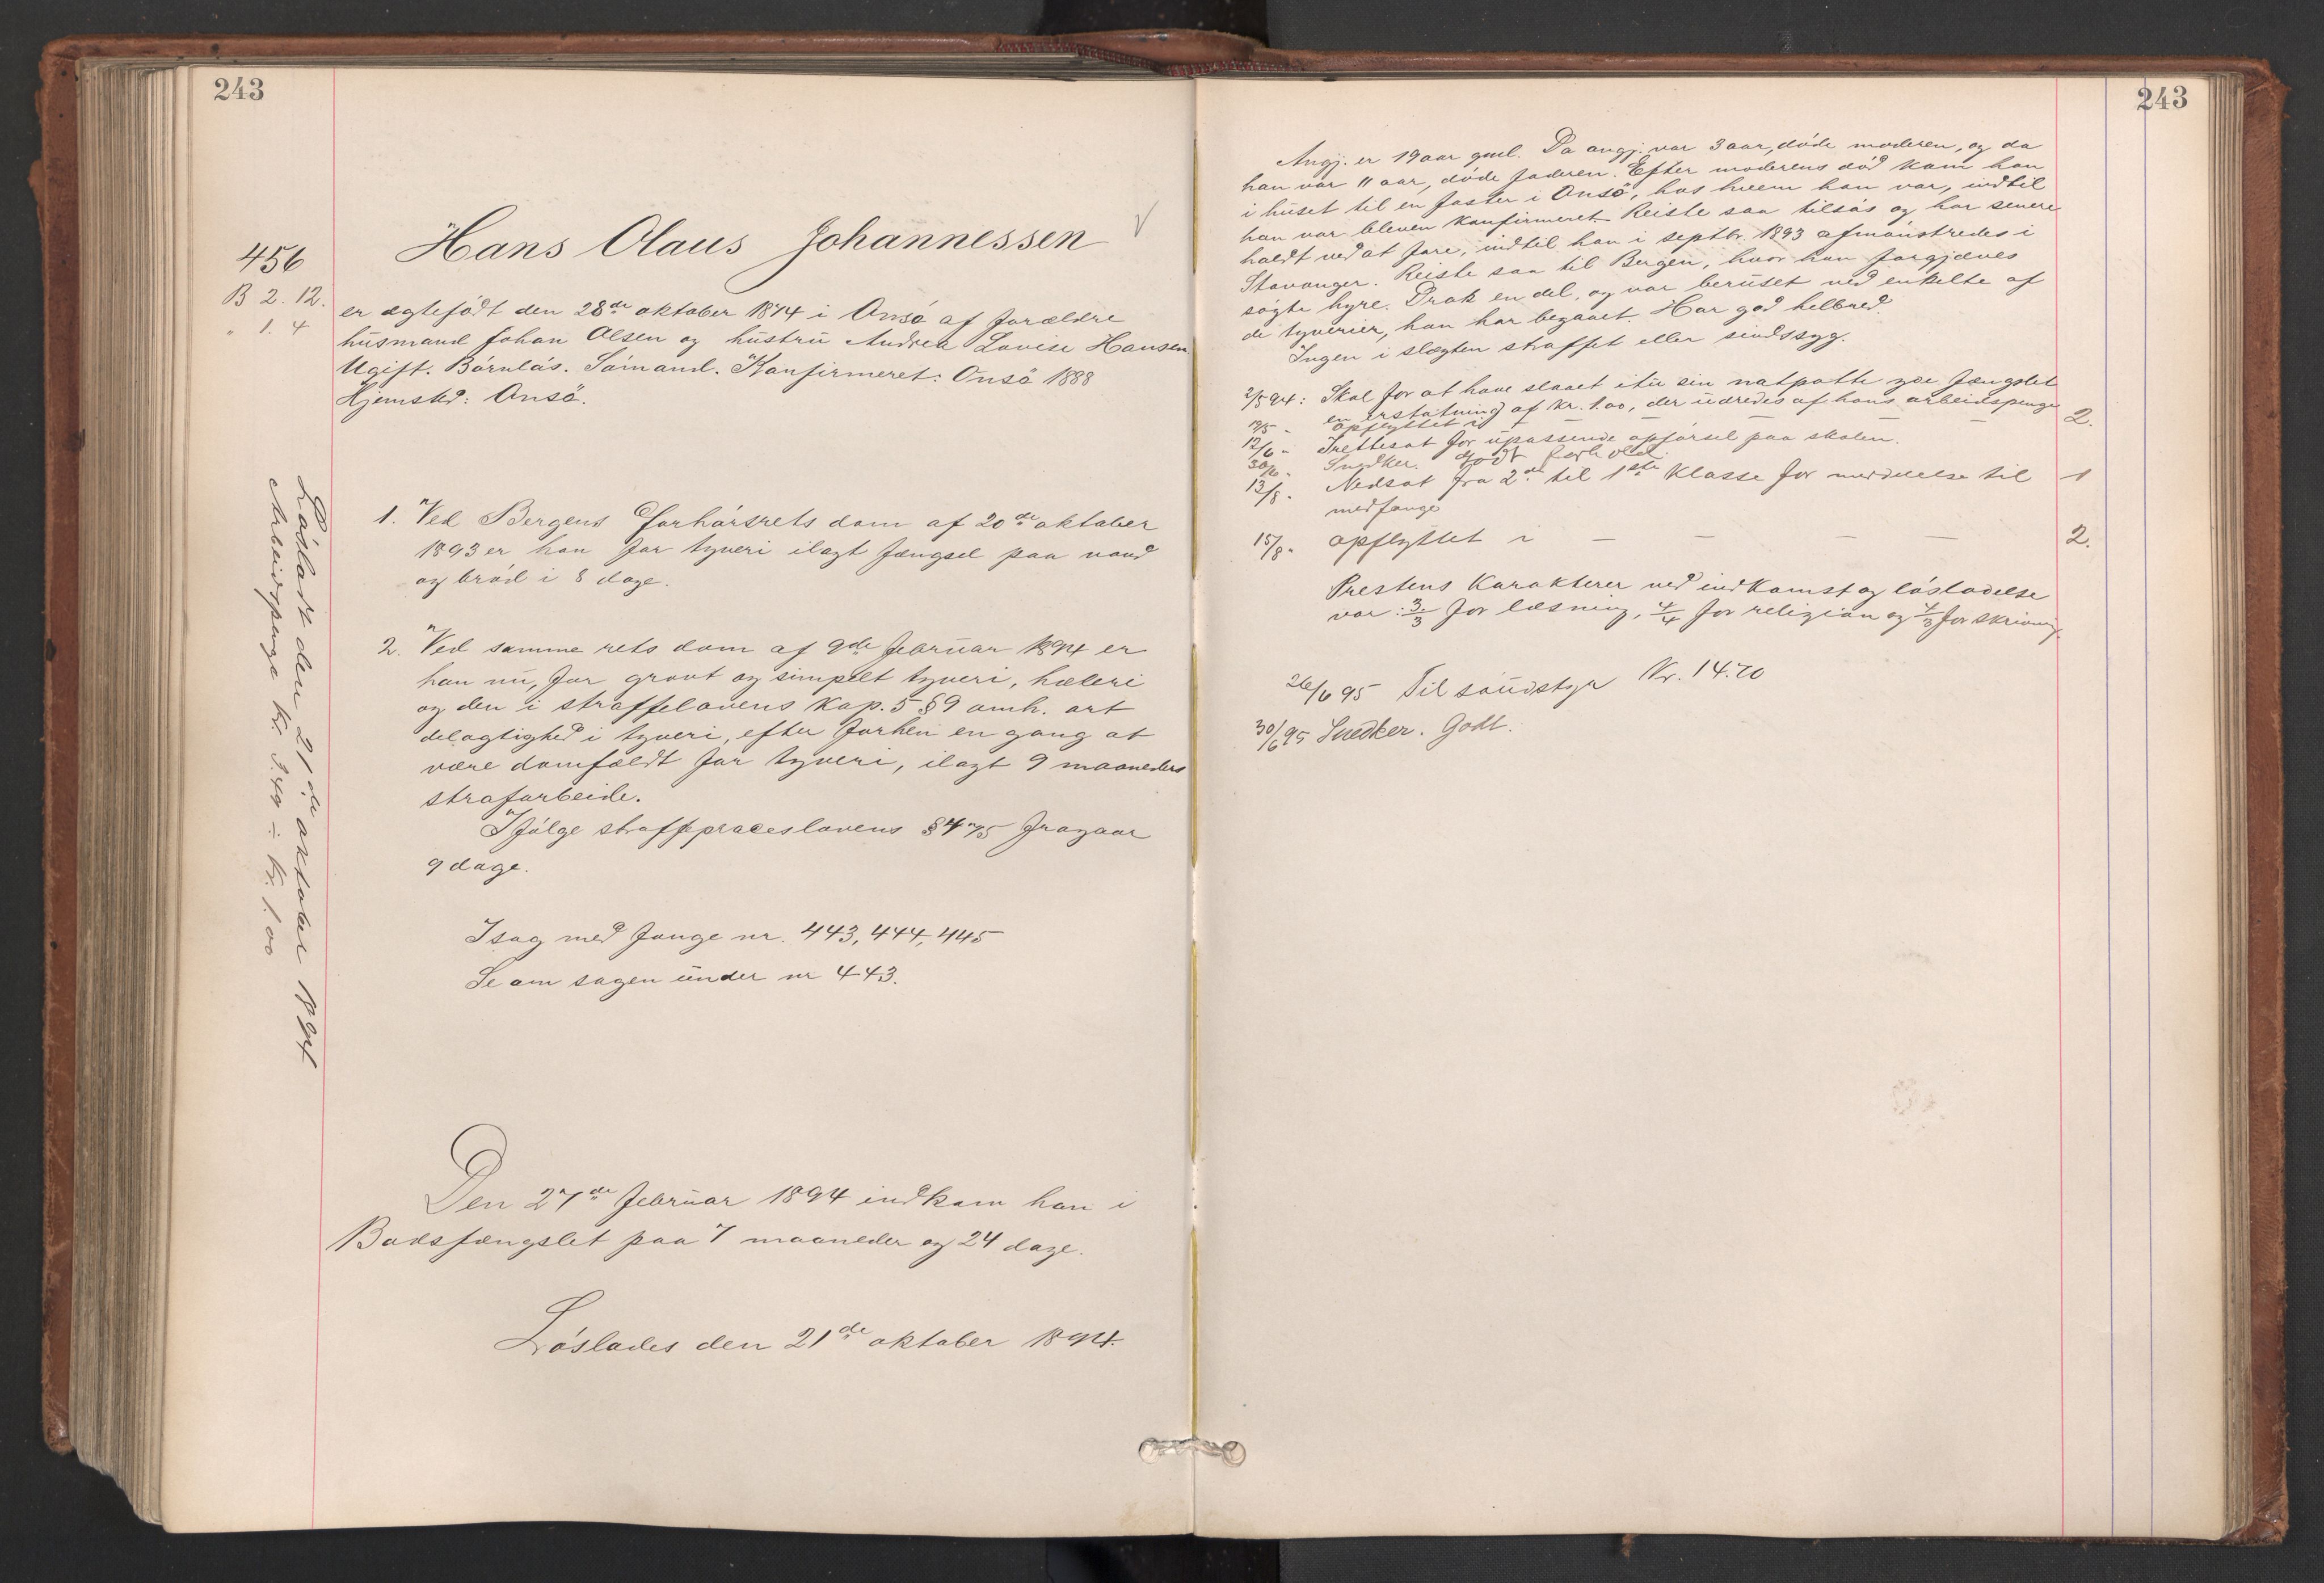 243
456
B 2. 12.
" 1. 4
Hans Olaus Johannessen
er ægtefödt den 28de oktober 1874 i Onsö af forældre
husmand Johan Olsen og hustru Andrea Lovise Hansen
Ugift. Börnlös. Sömand. Konfirmeret: Onsö 1888
Hjemsted: Onsö.
1. Ved Bergens Forhörsrets dom af 20de oktober
1893 er han for tyveri ilagt fængsel paa vand
og bröd i 8 dage.
2. Ved samme rets dom af 9de februar 1894 er
han nu, for grovt og simpelt tyveri, hæleri
og den i straffelovens kap. 5 § 9 omh. art
delagtighed i tyveri, efter forhen en gang at
være domfældt for tyveri, ilagt 9 maaneders
strafarbeide.
Ifölge straffeproceslovens § 475 fragaar
9 dage.
I sag med fange nr. 443, 444, 445
Se om sagen under nr 443.
Den 27de februar 1894 indkom han i
Bodsfængslet paa 7 maaneder og 24 dage.
Löslades den 21de oktober 1894.
Lösladt den 21de oktober 1894
Arbeidspenge kr. 3.40 ÷ kr. 1.00
243
Angj. er 19 aar gml. Da angj. var 3 aar, döde moderen, og da
han var 11 aar, döde faderen. Efter moderens död kom han
i huset til en faster i Onsö, hos hvem han var, indtil
han var bleven konfirmeret. Reiste saa tilsös og har senere
holdt ved at fare, indtil han i septbr. 1893 afmönstredes i
Stavanger. Reiste saa til Bergen, hvor han forgjæves
sögte hyre. Drak en del, og var beruset ved enkelte af
de tyverier, han har begaaet. Har god helbred.
Ingen i slægten straffet eller sindssyg.
2/5 94: Skal for at have slaaet itu sin natpotte yde fængslet
en erstatning af kr. 1.00, der udredes af hans arbeidspenge
19/5 " opflyttet i — — — — 2.
12/6 " Irettesat for upassende opförsel paa skolen.
30/6 " Snedker. Godt forhold.
13/8 " Nedsat fra 2de til 1ste klasse for meddelelse til 1
medfange
15/8 " opflyttet i — — — — 2.
Prestens karakterer ved indkomst og lösladelse
var: 3/3 for læsning, 4/4 for religion og 4/3 for skrivning.
26/6 95 Tilsöudstyr Kr. 14.70
30/6 95 Snedker. Godt.